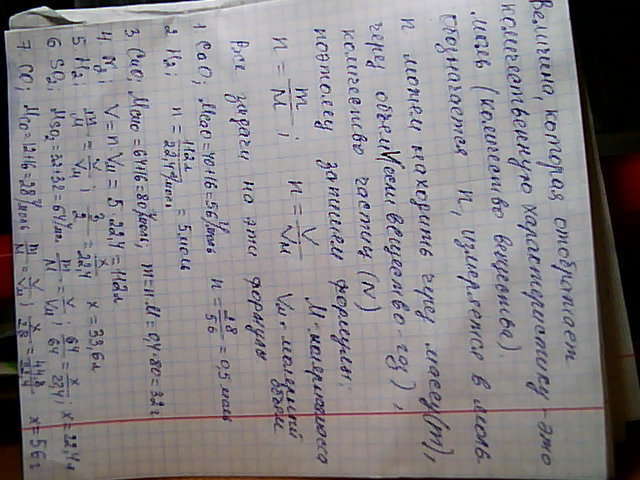 Величина, которая отображает
количественную характеристику - это
моль (количество вещества).
обозначается n, измеряется в моль
n можем находить через массу (m),
через объем V (если вещество - газ),
количество частиц (N)
поэтому запишем формулы:
n = m/M; n = V/Vм M - молярная масса
Vм - молярный объем
Все задачи на эти формулы
1 CaO; MCaO = 40+16 = 56 г/моль n = 28/56 = 0,5 моль
2 N2; n = 112л/22,4 л/моль = 5 моль
3 CuO; MCuO = 64+16 = 80 г/моль, m = n·M = 0,4·80 = 32 г
4 N2; V = n Vм = 5·22,4 = 112 л
5 H2; m/M = V/Vм; 3/2 = x/22,4 x = 33,6 л
6 SO2; MSO2 = 32+32 = 64 г/м. m/M = V/Vм; 64/64 = x/22,4; x = 22,4 л
7 CO; MCO = 12+16 = 28 г/моль m/M = V/Vм x/28 = 44,8/22,4 x = 56 г